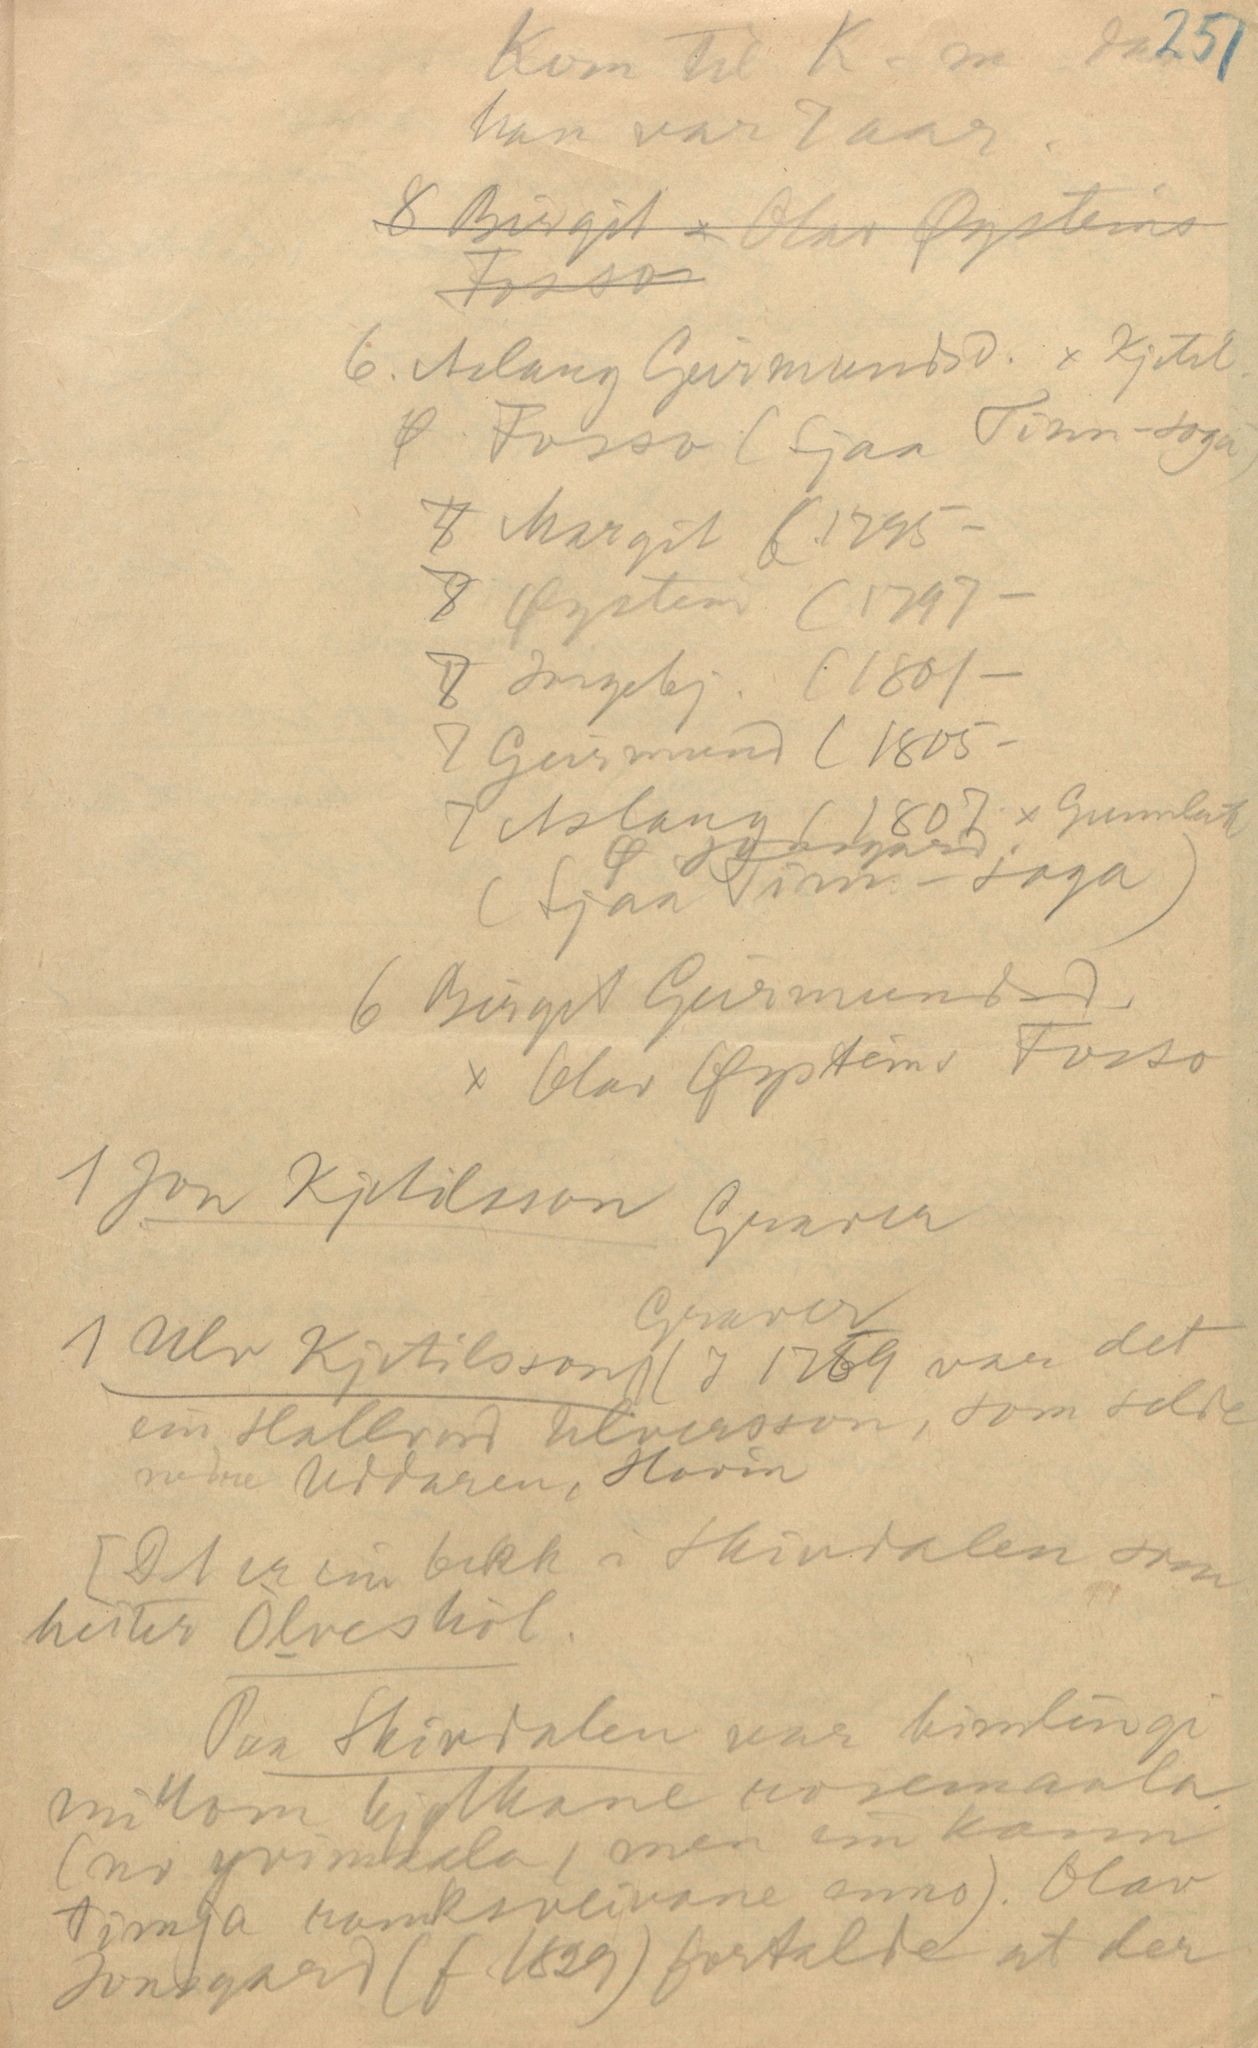 251
Kom til K-m da
han var 7 aar.
8 Birgit x Olav Øysteins
Fosso
6. Aslaug Geirmundsd. x Kjetil
Ø. Fosso (Sjaa Tinn-soga)
7 Margit (1795-
7 Øystein (1797-
7 Ingebj. (1801-
7 Geirmund (1805-
7 Aslaug (1807 x Gunnleik
Ø Jonsgard.
(Sjaa Tinn-soga)
6 Birgit Geirmundsd.
x Olav Øysteins Fosso
1 Jon Kjetilsson Graver
Graver
1 Ulv Kjetilsson (I 1769 var det
ein Hallvord Ulversson, som selde
nedre Uddaren, Hovin
[Det er ein bekk i Skirdalen som
heiter Ölveshöl.
Paa Skirdalen var himlingi
millom bjelkane rosemaala
(no yvimaala, men ein kann
timja rankorveivane enno). Olav
Jonsgard (f 1829) fortalde at der